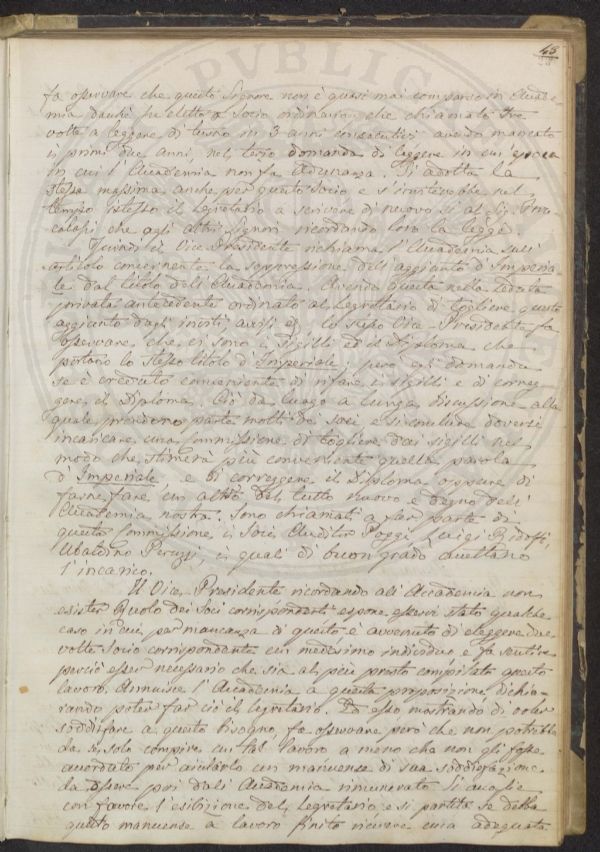 48
fa osservare che questo Signore non è quasi mai comparso in Accade-
mia dacchè fu eletto a Socio ordinario, che chiamato tre
volte a leggere di turno in 3 anni consecutivi avendo mancato
i primi due anni, nel terzo domanda di leggere in un' epoca
in cui l'Accademia non fa Adunanza. Si adotta la
stessa massima anche per questo Socio e s'incarica nel
tempo istesso il Segretario a scrivere di nuovo sì al Sig.
che agli altri Signori ricordando loro la legge
Quindi il Vice Presidente richiama l'Accademia sull'
articolo concernente la soppressione dell'aggiunto d'Imperia-
le dal titolo dell'Accademia. Avendo questa nella seduta
privata antecedente ordinato al Segretario di togliere questo
aggiunto dagli inviti, avvisi lo stesso Vice-Presidente fa
osservare che ci sono i sigilli ed il Diploma che
portano lo stesso titolo d'Imperiale, però egli domanda
se è creduto conveniente di rifare i sigilli e di correg-
gere il Diploma. Ciò dà luogo a lunga discussione alla
quale prendono parte molti dei soci e si conclude doversi
incaricare una Commissione di togliere dai sigilli nel
modo che stimerà più conveniente quella parola
d'Imperiale e di correggere il Diploma oppure di
farne fare un altro del tutto nuovo e degno dell'
Accademia nostra. Sono chiamati a far parte di
questa Commissione i Soci Auditor Poggi, Luigi Ridolfi,
Ubaldino Peruzzi, i quali di buon grado accettano
l'incarico.
Il Vice Presidente ricordando all'Accademia non
esister Ruolo dei Soci corrispondenti espone esservi stato qualche
caso in cui per mancanza di questo è avvenuto di eleggere due
volte Socio corrispondente un medesimo individuo e fa sentire
perciò esser necessario che sia al più presto compilato questo
lavoro. Annuisce l'Accademia a questa proposizione dichia-
rando poter far ciò il Segretario. Ed esso mostrando di voler
soddisfare a questo bisogno, fa osservare però che non potrebbe
da se solo compire un tal lavoro a meno che non gli fosse
accordato per aiutarlo un manuense di sua soddisfazione
da esser poi dall'Accademia rimunerato. Si accoglie
con favore l'esibizione del Segretario e si partita se debba
questo manuense a lavoro finito ricevere una adeguata